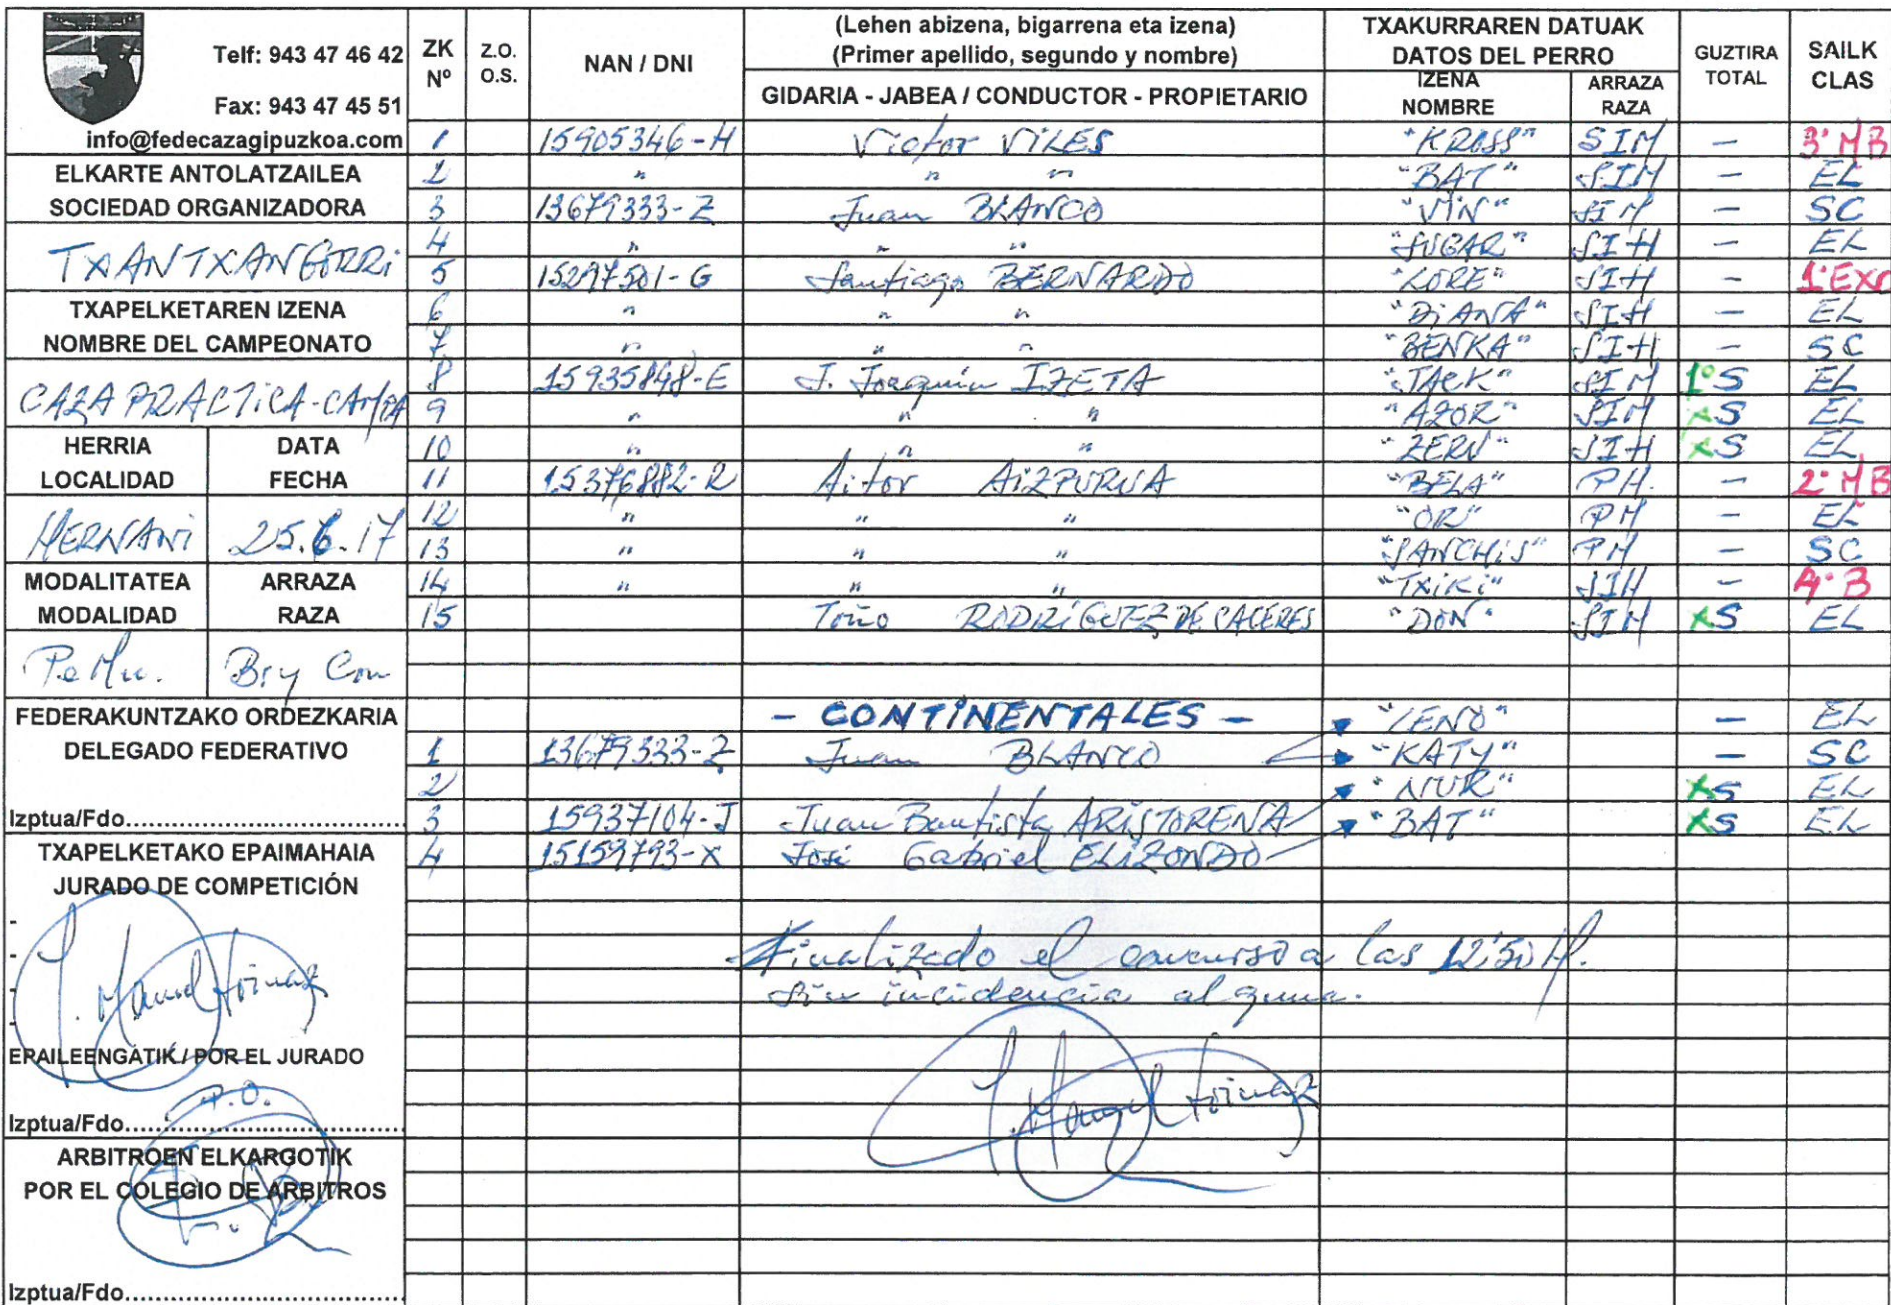 Telf: 943 47 46 42
Fax: 943 47 45 51
info@fedecazagipuzkoa.com
ELKARTE ANTOLATZAILEA
SOCIEDAD ORGANIZADORA
TXANTXANGORRI
TXAPELKETAREN IZENA
NOMBRE DEL CAMPEONATO
CAZA PRACTICA-CAMPA
HERRIA LOCALIDAD DATA FECHA
HERNANI 25.6.17
MODALITATEA MODALIDAD ARRAZA RAZA
Bry Con
FEDERAKUNTZAKO ORDEZKARIA
DELEGADO FEDERATIVO
Izptua/Fdo.
TXAPELKETAKO EPAIMAHAIA
JURADO DE COMPETICIÓN
ERAILEENGATIK / POR EL JURADO
P.O.
Izptua/Fdo.
ARBITROEN ELKARGOTIK
POR EL COLEGIO DE ARBITROS
Izptua/Fdo.
ZK Nº Z.O. O.S. NAN / DNI
(Lehen abizena, bigarrena eta izena)
(Primer apellido, segundo y nombre)
GIDARIA - JABEA / CONDUCTOR - PROPIETARIO
TXAKURRAREN DATUAK
DATOS DEL PERRO
IZENA NOMBRE ARRAZA RAZA
GUZTIRA TOTAL SAILK CLAS
1 15905346-H Victor VILES "KROSS" SIM - 3º MB
2 " " " "BAT" SIM - EL
3 13679333-Z Juan BLANCO "VIN" SIM - SC
4 " " " "SUGAR" SIH - EL
5 15297501-G Santiago BERNARDO "LORE" SIH - 1º Exc
6 " " " "DiANA" SIH - EL
7 " " " "BENKA" SIH - SC
8 15935848-E J. Joaquin IZETA "JACK" SIM 1º S EL
9 " " " "AZOR" SIM xS EL
10 " " " "ZERU" SIH xS EL
11 15376882-R Aitor AiZPURUA "BELA" PH. - 2º MB
12 " " " "OR" PM - EL
13 " " " "SANCHiS" PM - SC
14 " " " "TxiKi" SIH - 4º B
15 Toño RODRiGUEZ DE CACERES "DON" SIM xS EL
- CONTINENTALES - "LENO" - EL
1 13679333-Z Juan BLANCO "KATY" - SC
2 "NUR" xS EL
3 15937104-J Juan Bautista ARiSTORENA "BAT" xS EL
4 15159793-X José Gabriel ELiZONDO
Finalizado el concurso a las 12'50 H.
Sin incidencia alguna.